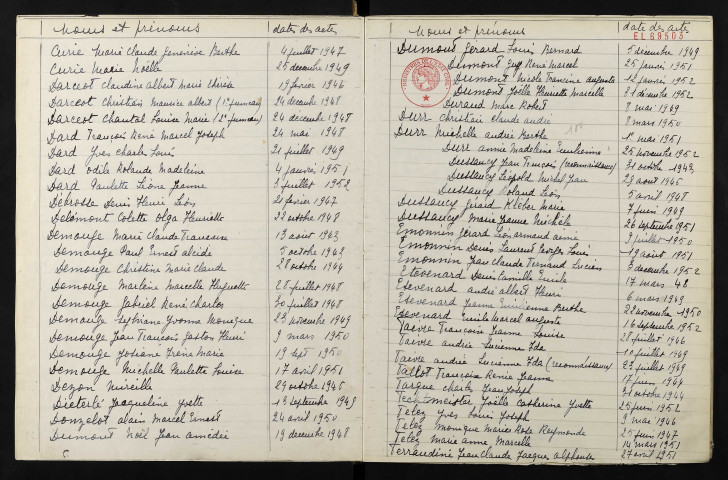 Noms et prénoms dates des actes
Curie Marie Claude Geneviève Berthe 4 juillet 1947
Curie Marie Noëlle 25 décembre 1949
Darceot Claudine Albert Marie 19 février 1946
Darceot Christian Maurice Albert (1er jumeau) 24 décembre 1948
Darceot Chantal Louise Marie (2e jumeau) 24 décembre 1948
Dard François René Marcel Joseph 24 mai 1948
Dard Yves Charles Louis 21 juillet 1949
Dard Odile Rolande Madeleine 4 janvier 1951
Dard Paulette Liône Jeanne 3 juillet 1952
Debrosse Denis Henri Léon 21 février 1947
Delémont Colette Olga Henriette 23 octobre 1948
Demouge Marie Claude Francoise 13 août 1943
Demouge Paul Ernest Alcide 5 octobre 1943
Demouge Christine Marie Claude 28 octobre 1944
Demouge Marlène Marcelle Huguette 28 juillet 1948
Demouge Gabriel René Charles 30 juillet 1948
Demouge Sylviane Yvonne Monique 23 novembre 1949
Demouge Jean François Gaston Henri 9 mars 1950
Demouge Josiane Irène Marie 19 sept 1950
Demouge Michelle Paulette Louise 17 avril 1951
Dezon Mireille 29 octobre 1945
Dieterlé Jacqueline Yvette 13 septembre 1949
Donzelot Alain Marcel Ernest 24 avril 1950
Dumont Noël Jean Amédée 19 décembre 1948
Noms et prénoms date des actes
EL 69505
Dumont Gérard Louis Bernard 5 décembre 1949
Dumont Guy René Marcel 25 janvier 1951
Dumont Nicole Francine Augusta 12 janvier 1952
Dumont Joëlle Henriette Marcelle 31 décembre 1952
Duraud Marc Robert 8 mai 1949
Durr Christian Claude André 8 mars 1950
Durr Michelle Andrée Berthe 1er mai 1951
Durr Annie Madeleine 25 novembre 1952
Dussancy Jean François (reconnaissance) 31 octobre 1943
Dussancy Léopold Michel Jean 23 août 1945
Dussancy Roland Léon 5 avril 1948
Dussancy Gérard Kléber Marie 7 juin 1949
Dussancy Marie Jeanne Michèle 26 septembre 1951
Emonnin Gérard Léon Armand Aimé 9 juillet 1950
Emonnin Denis Laurent Georges Louis 19 août 1951
Emonnin Jean Claude Fernand Lucien 3 décembre 1952
Etevenard Denis Camille Emile 17 mars 48
Etevenard André Albert Henri 6 mars 1949
Etevenard Jeanne Emilienne Berthe 22 novembre 1950
Etevenard Emile Marcel Auguste 16 septembre 1952
Faivre Françoise Jeanne Louise 28 juillet 1946
Faivre Andrée Lucienne Ida 10 juillet 1949
Faivre Andrée Lucienne Ida (reconnaissance) 23 juillet 1949
Fallot Françoise Renée Jeanne 17 juin 1944
Fargue Charles Jean Joseph 31 octobre 1944
Fechtmeister Joëlle Catherine Yvette 25 juin 1952
Felez Yves Louis Joseph 9 mai 1946
Felez Monique Marie Rose Raymonde 25 juin 1947
Felez Marie Anne Marcelle 14 mars 1951
Ferrandini Jean Claude Jacques Alphonse 27 avril 1951